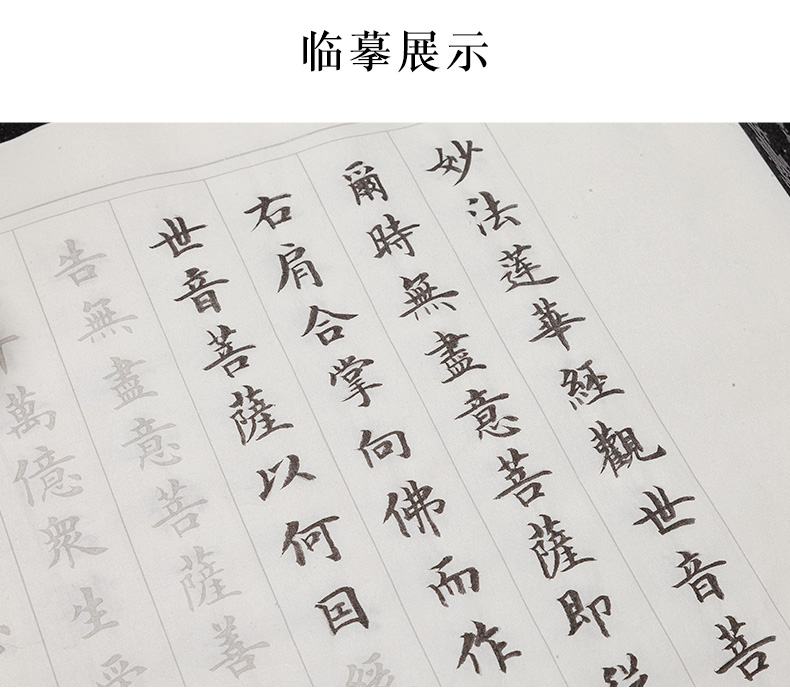 临摹展示
妙法蓮華經觀世音菩
爾時無盡意菩薩即從
右肩合掌向佛而作
世音菩薩以何因緣
告無盡意菩薩善
萬億衆生受